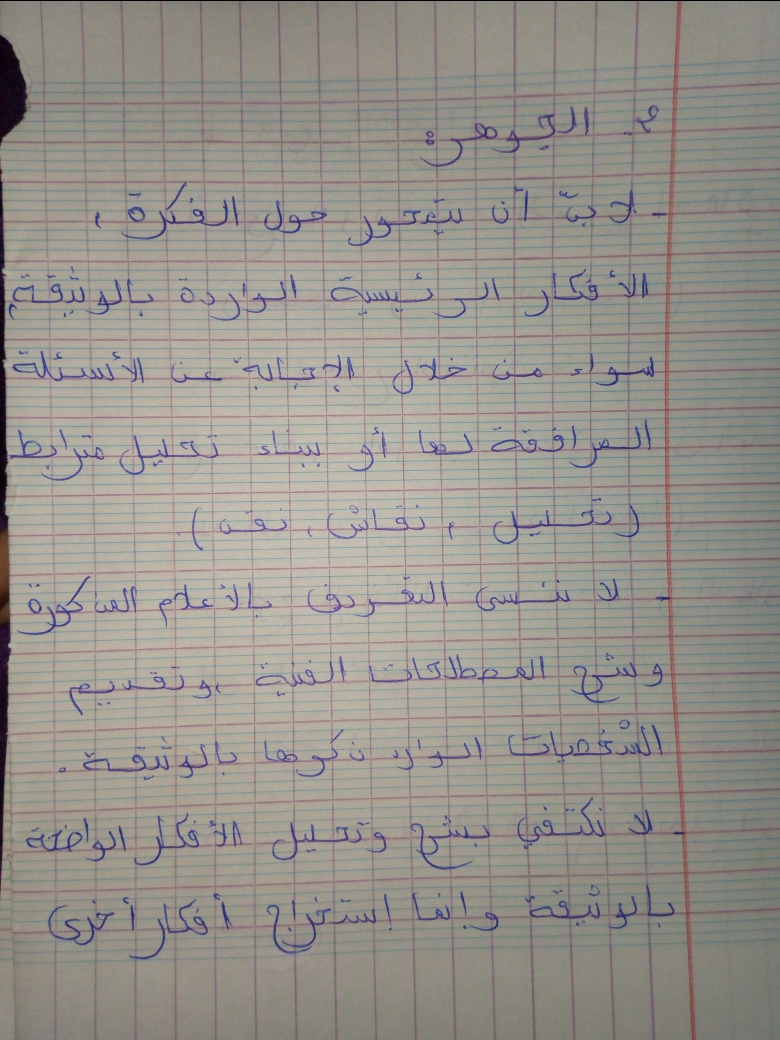 2. الجوهر:
- لا بدّ أن يتمحور حول الفكرة،
الأفكار الرئيسية الواردة بالوثيقة
سواء من خلال الإجابة عن الأسئلة
المرافقة لها أو ببناء تحليل مترابط
(تحليل، نقاش، نقد).
- لا ننسى التعريف بالأعلام المذكورة
وشرح المصطلحات الفنية، وتقديم
الشخصيات الوارد ذكرها بالوثيقة.
- لا نكتفي بشرح وتحليل الأفكار الواضحة
بالوثيقة وإنما إستخراج أفكار أخرى